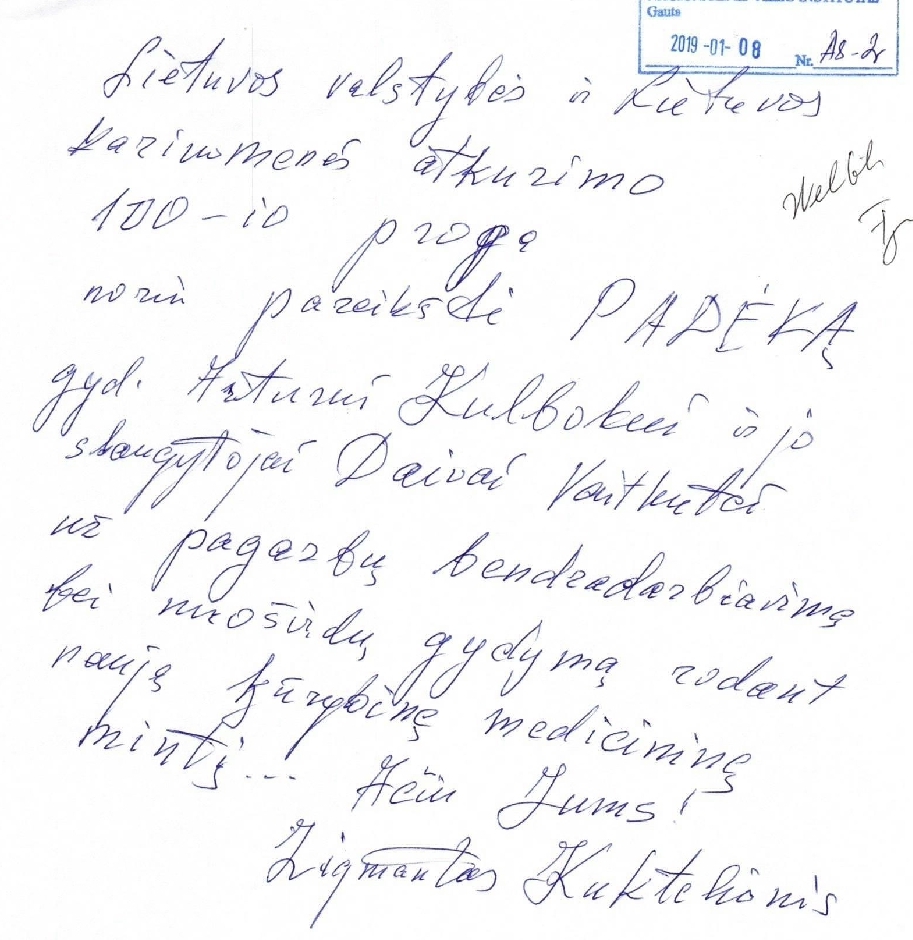 Gauta
2019-01-08 Nr. A8-2r
Lietuvos valstybės ir Lietuvos
kariuomenės atkurimo
100-io progą
noriu pareikšti PADĖKĄ
gyd. Arturui Kulbokui ir jo
slaugytojai Daivai Vaitkutei
už pagarbų bendradarbiavimą
bei nuoširdų gydymą rodant
naują kūrybinę medicininę
mintį... Ačiū Jums!
Zigmantas Kuktelionis